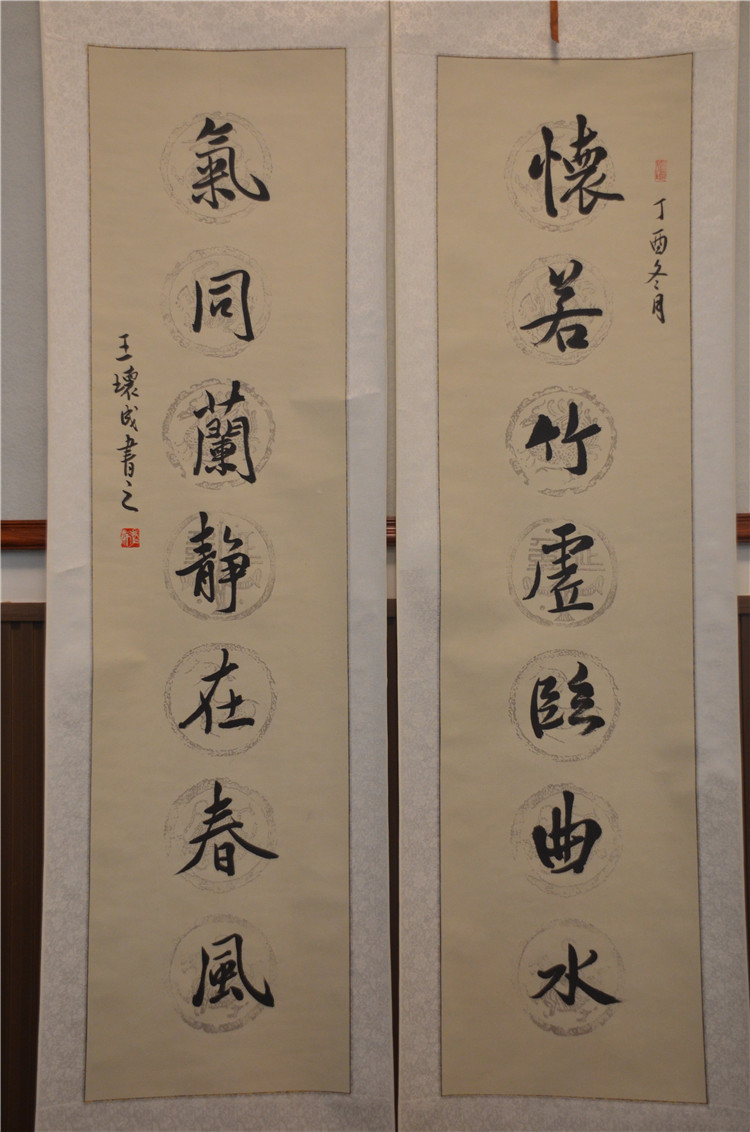 丁酉冬月
懷若竹虛臨曲水
氣同蘭靜在春風
王壞成書之